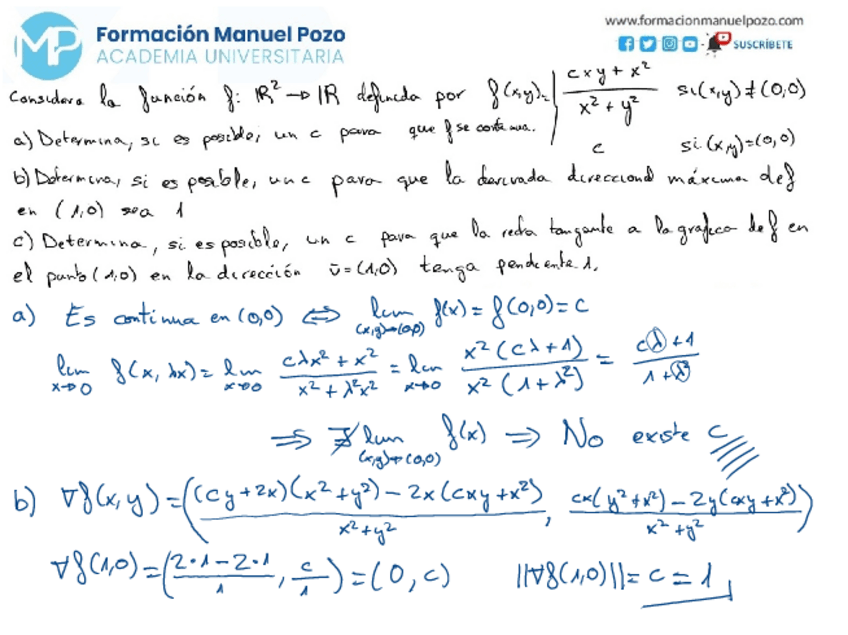 Formación Manuel Pozo
ACADEMIA UNIVERSITARIA
www.formacionmanuelpozo.com
SUSCRÍBETE
Considera la función f: ℝ² → ℝ definida por f(x,y)= | (cxy + x²)/(x² + y²) si (x,y) ≠ (0,0)
c si (x,y)=(0,0)
a) Determina, si es posible, un c para que f se continua.
b) Determina, si es posible, un c para que la derivada direccional máxima de f
en (1,0) sea 1
c) Determina, si es posible, un c para que la recta tangente a la grafica de f en
el punto (1,0) en la dirección ū=(1,0) tenga pendiente 1.
a) Es continua en (0,0) ⇔ lim (x,y)→(0,0) f(x) = f(0,0) = c
lim x→0 f(x, λx) = lim x→0 (cλx² + x²)/(x² + λ²x²) = lim x→0 (x²(cλ+1))/(x²(1+λ²)) = (cλ+1)/(1+λ²)
⇒ ∄ lim (x,y)→(0,0) f(x) ⇒ No existe c
b) ∇f(x,y) = (((cy+2x)(x²+y²) − 2x(cxy+x²))/(x²+y²), (cx(y²+x²) − 2y(cxy+x²))/(x²+y²))
∇f(1,0) = ((2·1−2·1)/1, c/1) = (0, c) ||∇f(1,0)|| = c = 1